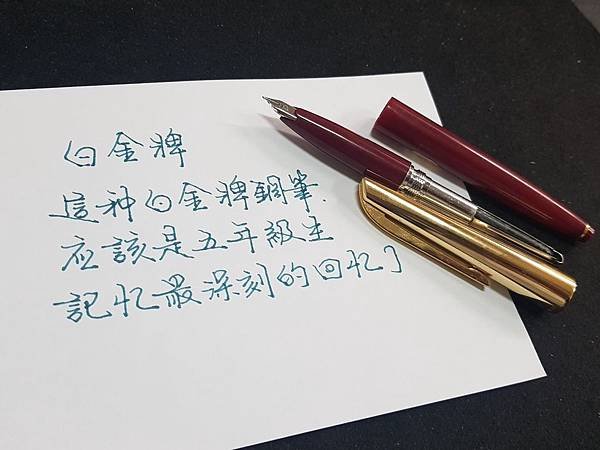 白金牌
這种白金牌鋼筆.
应該是五年級生
記忆最深刻的回忆了